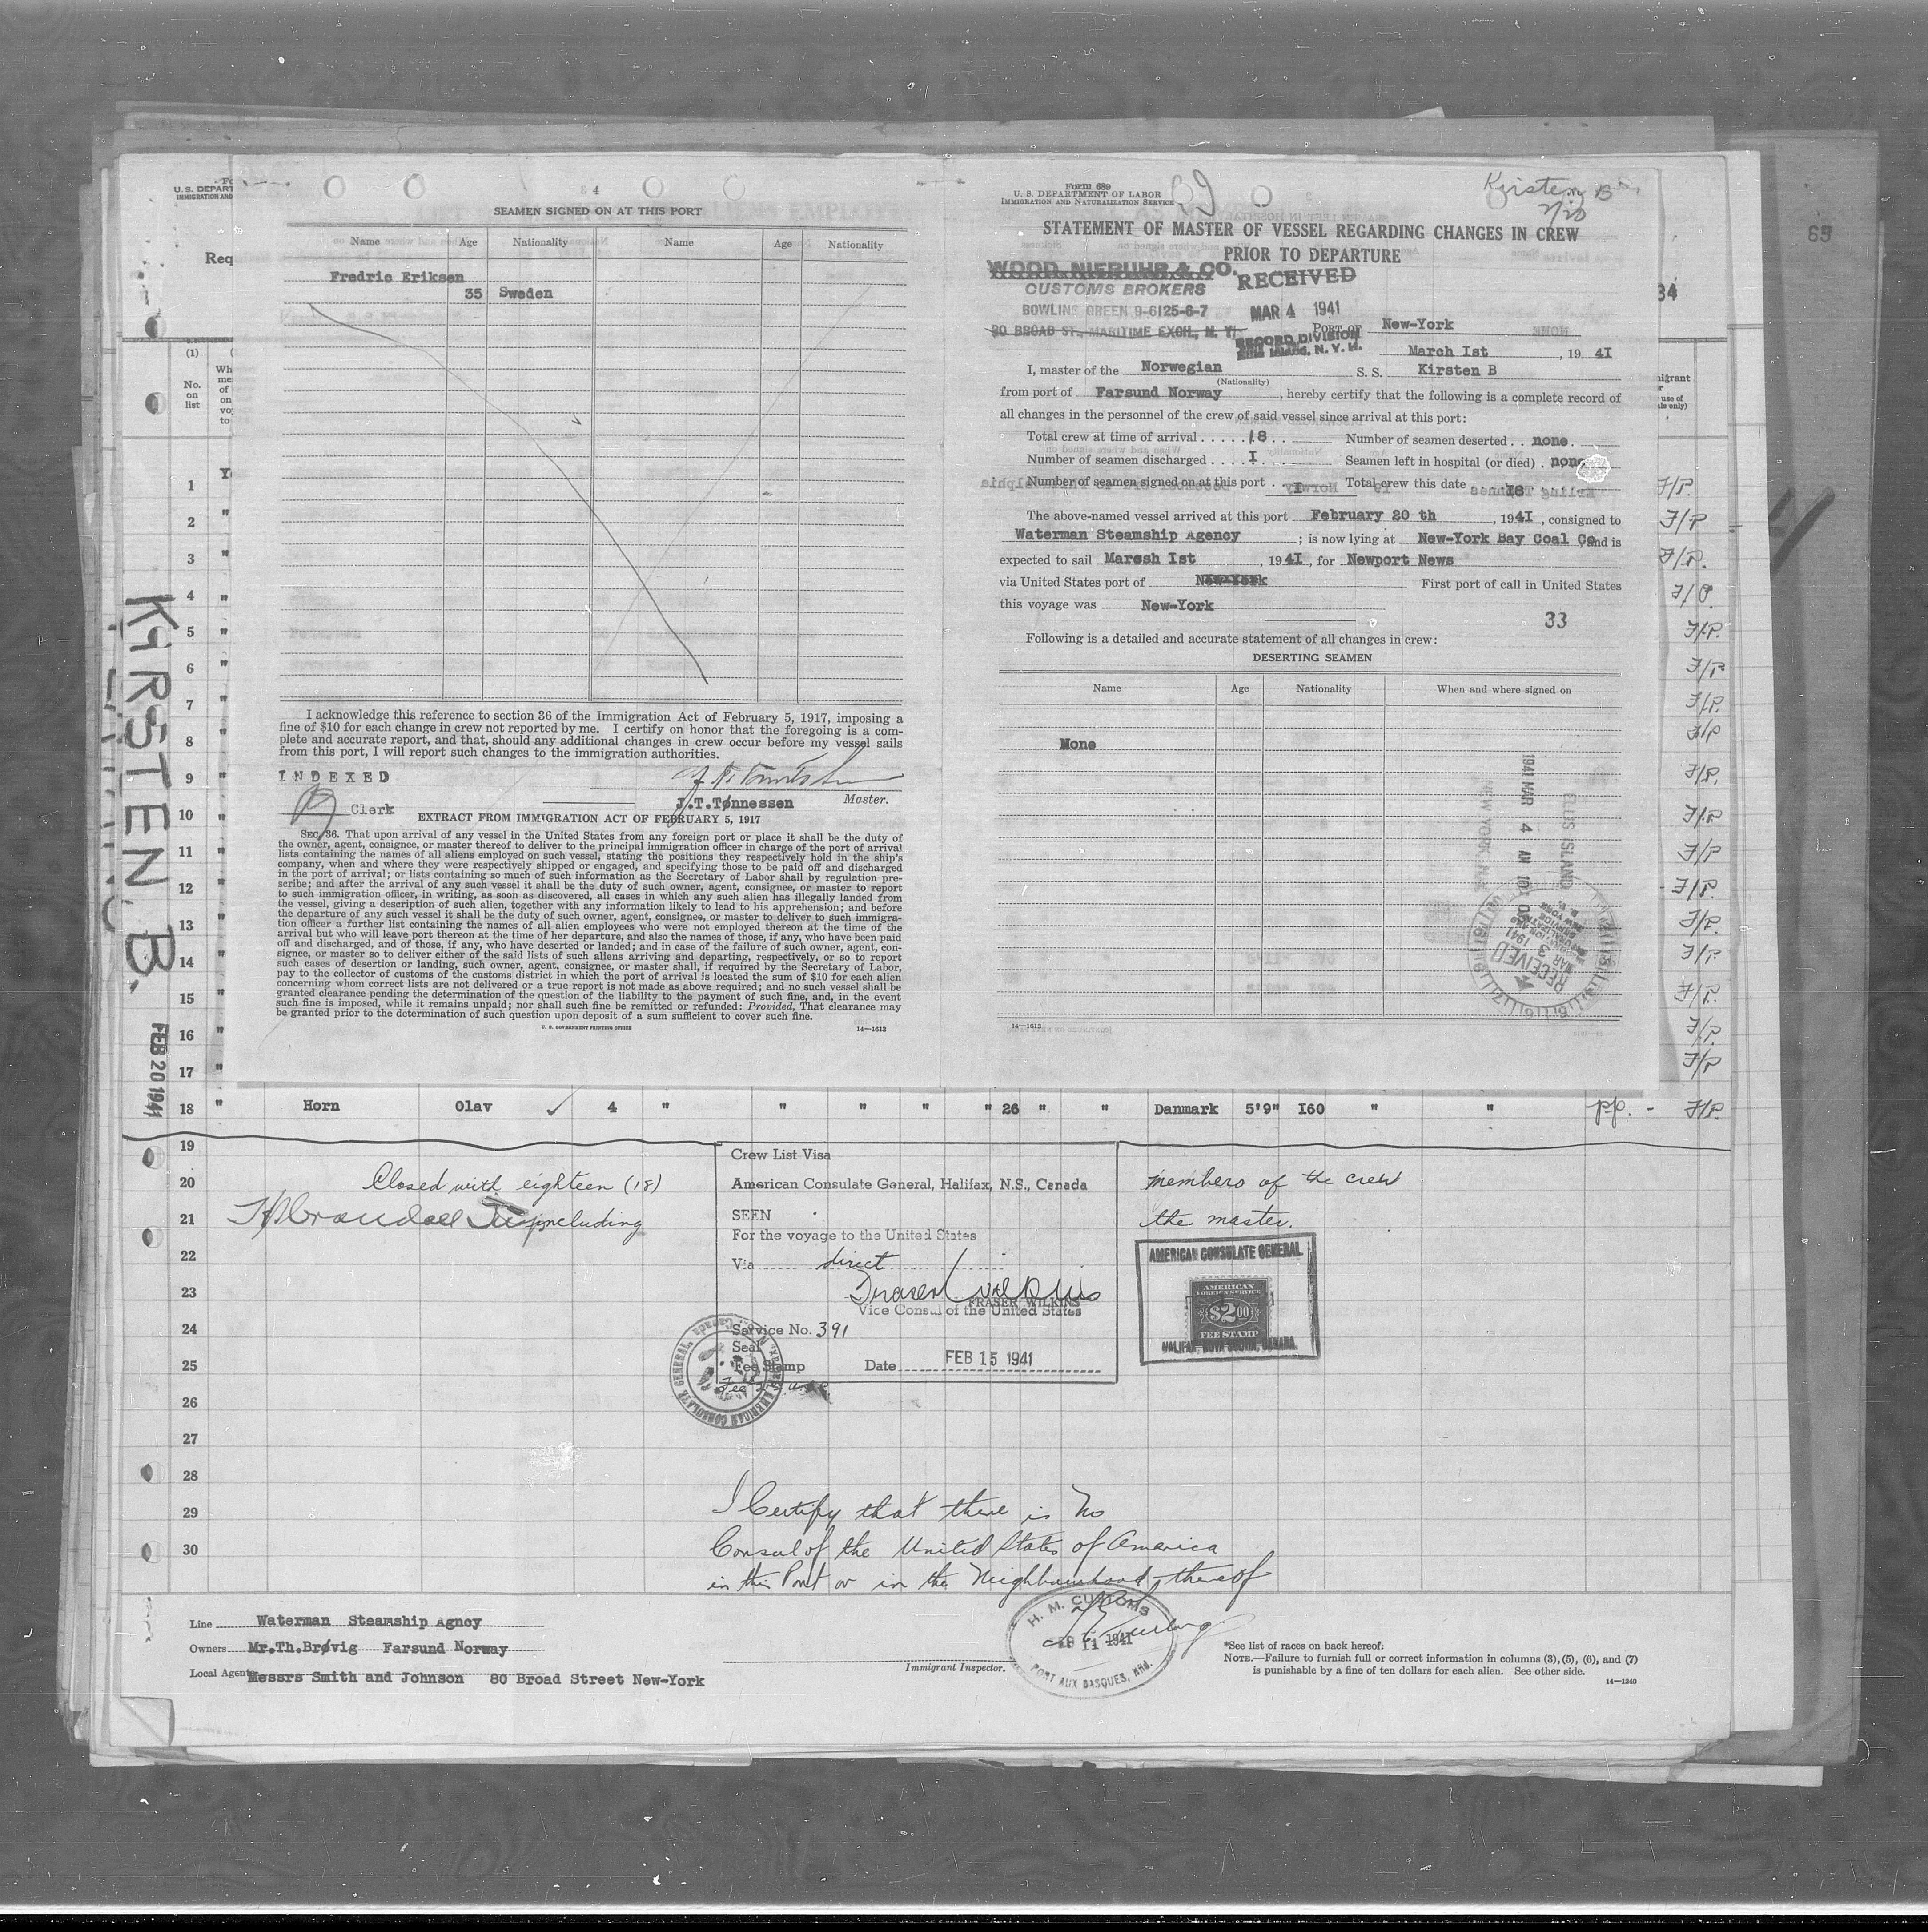 4
SEAMEN SIGNED ON AT THIS PORT
Name Age Nationality Name Age Nationality
Fredric Eriksen
35 Sweden
I acknowledge this reference to section 36 of the Immigration Act of February 5, 1917, imposing a
fine of $10 for each change in crew not reported by me. I certify on honor that the foregoing is a com-
plete and accurate report, and that, should any additional changes in crew occur before my vessel sails
from this port, I will report such changes to the immigration authorities.
INDEXED
Clerk
J.T.Tønnessen Master.
EXTRACT FROM IMMIGRATION ACT OF FEBRUARY 5, 1917
SEC. 36. That upon arrival of any vessel in the United States from any foreign port or place it shall be the duty of
the owner, agent, consignee, or master thereof to deliver to the principal immigration officer in charge of the port of arrival
lists containing the names of all aliens employed on such vessel, stating the positions they respectively hold in the ship's
company, when and where they were respectively shipped or engaged, and specifying those to be paid off and discharged
in the port of arrival; or lists containing so much of such information as the Secretary of Labor shall by regulation pre-
scribe; and after the arrival of any such vessel it shall be the duty of such owner, agent, consignee, or master to report
to such immigration officer, in writing, as soon as discovered, all cases in which any such alien has illegally landed from
the vessel, giving a description of such alien, together with any information likely to lead to his apprehension; and before
the departure of any such vessel it shall be the duty of such owner, agent, consignee, or master to deliver to such immigra-
tion officer a further list containing the names of all alien employees who were not employed thereon at the time of the
arrival but who will leave port thereon at the time of her departure, and also the names of those, if any, who have been paid
off and discharged, and of those, if any, who have deserted or landed; and in case of the failure of such owner, agent, con-
signee, or master so to deliver either of the said lists of such aliens arriving and departing, respectively, or so to report
such cases of desertion or landing, such owner, agent, consignee, or master shall, if required by the Secretary of Labor,
pay to the collector of customs of the customs district in which the port of arrival is located the sum of $10 for each alien
concerning whom correct lists are not delivered or a true report is not made as above required; and no such vessel shall be
granted clearance pending the determination of the question of the liability to the payment of such fine, and, in the event
such fine is imposed, while it remains unpaid; nor shall such fine be remitted or refunded: Provided, That clearance may
be granted prior to the determination of such question upon deposit of a sum sufficient to cover such fine.
U. S. GOVERNMENT PRINTING OFFICE 14—1613
Form 689
U. S. DEPARTMENT OF LABOR
IMMIGRATION AND NATURALIZATION SERVICE
Kirsten B
2/20
STATEMENT OF MASTER OF VESSEL REGARDING CHANGES IN CREW
PRIOR TO DEPARTURE
WOOD, NIEBUHR & CO.
CUSTOMS BROKERS
BOWLING GREEN 9-6125-6-7
80 BROAD ST., MARITIME EXCH., N. Y.
RECEIVED
MAR 4 1941
RECORD DIVISION
ELLIS ISLAND, N. Y. H.
PORT OF New-York
March Ist , 19 4I
I, master of the Norwegian S. S. Kirsten B
(Nationality)
from port of Farsund Norway , hereby certify that the following is a complete record of
all changes in the personnel of the crew of said vessel since arrival at this port:
Total crew at time of arrival 18 Number of seamen deserted none
Number of seamen discharged I Seamen left in hospital (or died) none
Number of seamen signed on at this port I Total crew this date I8
The above-named vessel arrived at this port February 20 th , 194I , consigned to
Waterman Steamship Agency ; is now lying at New-York Bay Coal Co and is
expected to sail Marssh Ist , 194I , for Newport News
via United States port of New-York First port of call in United States
this voyage was New-York
33
Following is a detailed and accurate statement of all changes in crew:
DESERTING SEAMEN
Name Age Nationality When and where signed on
None
1941 MAR 4 AM 10
ELLIS ISLAND
NEW YORK, N.Y.
RECEIVED
MAR 3 1941
14—1613
U. S. DEPART
IMMIGRATION AND
Req
(1)
No. on list
65
34
KIRSTEN B.
FEB 20 1941
1
2
3
4
5
6
7
8
9
10
11
12
13
14
15
16
17
18 " Horn Olav 4 " " " " " 26 " " Danmark 5'9" I60 " " pp. - F/P.
19
20 Closed with eighteen (18) members of the crew
21 including the master.
22
23
24
25
26
27
28
29
30
Crew List Visa
American Consulate General, Halifax, N.S., Canada
SEEN
For the voyage to the United States
Via direct
FRASER WILKINS
Vice Consul of the United States
Service No. 391
Seal
Fee Stamp
Date FEB 15 1941
AMERICAN CONSULATE GENERAL
AMERICAN
FOREIGN SERVICE
$2.00
FEE STAMP
HALIFAX, NOVA SCOTIA, CANADA
I Certify that there is no
Consul of the United States of America
in this Port or in the Neighbourhood thereof
H. M. CUSTOMS
FEB 11 1941
PORT AUX BASQUES, NFLD.
Immigrant Inspector.
Line Waterman Steamship Agncy
Owners Mr.Th.Brøvig Farsund Norway
Local Agents Messrs Smith and Johnson 80 Broad Street New-York
*See list of races on back hereof.
NOTE.—Failure to furnish full or correct information in columns (3), (5), (6), and (7)
is punishable by a fine of ten dollars for each alien. See other side.
14—1240